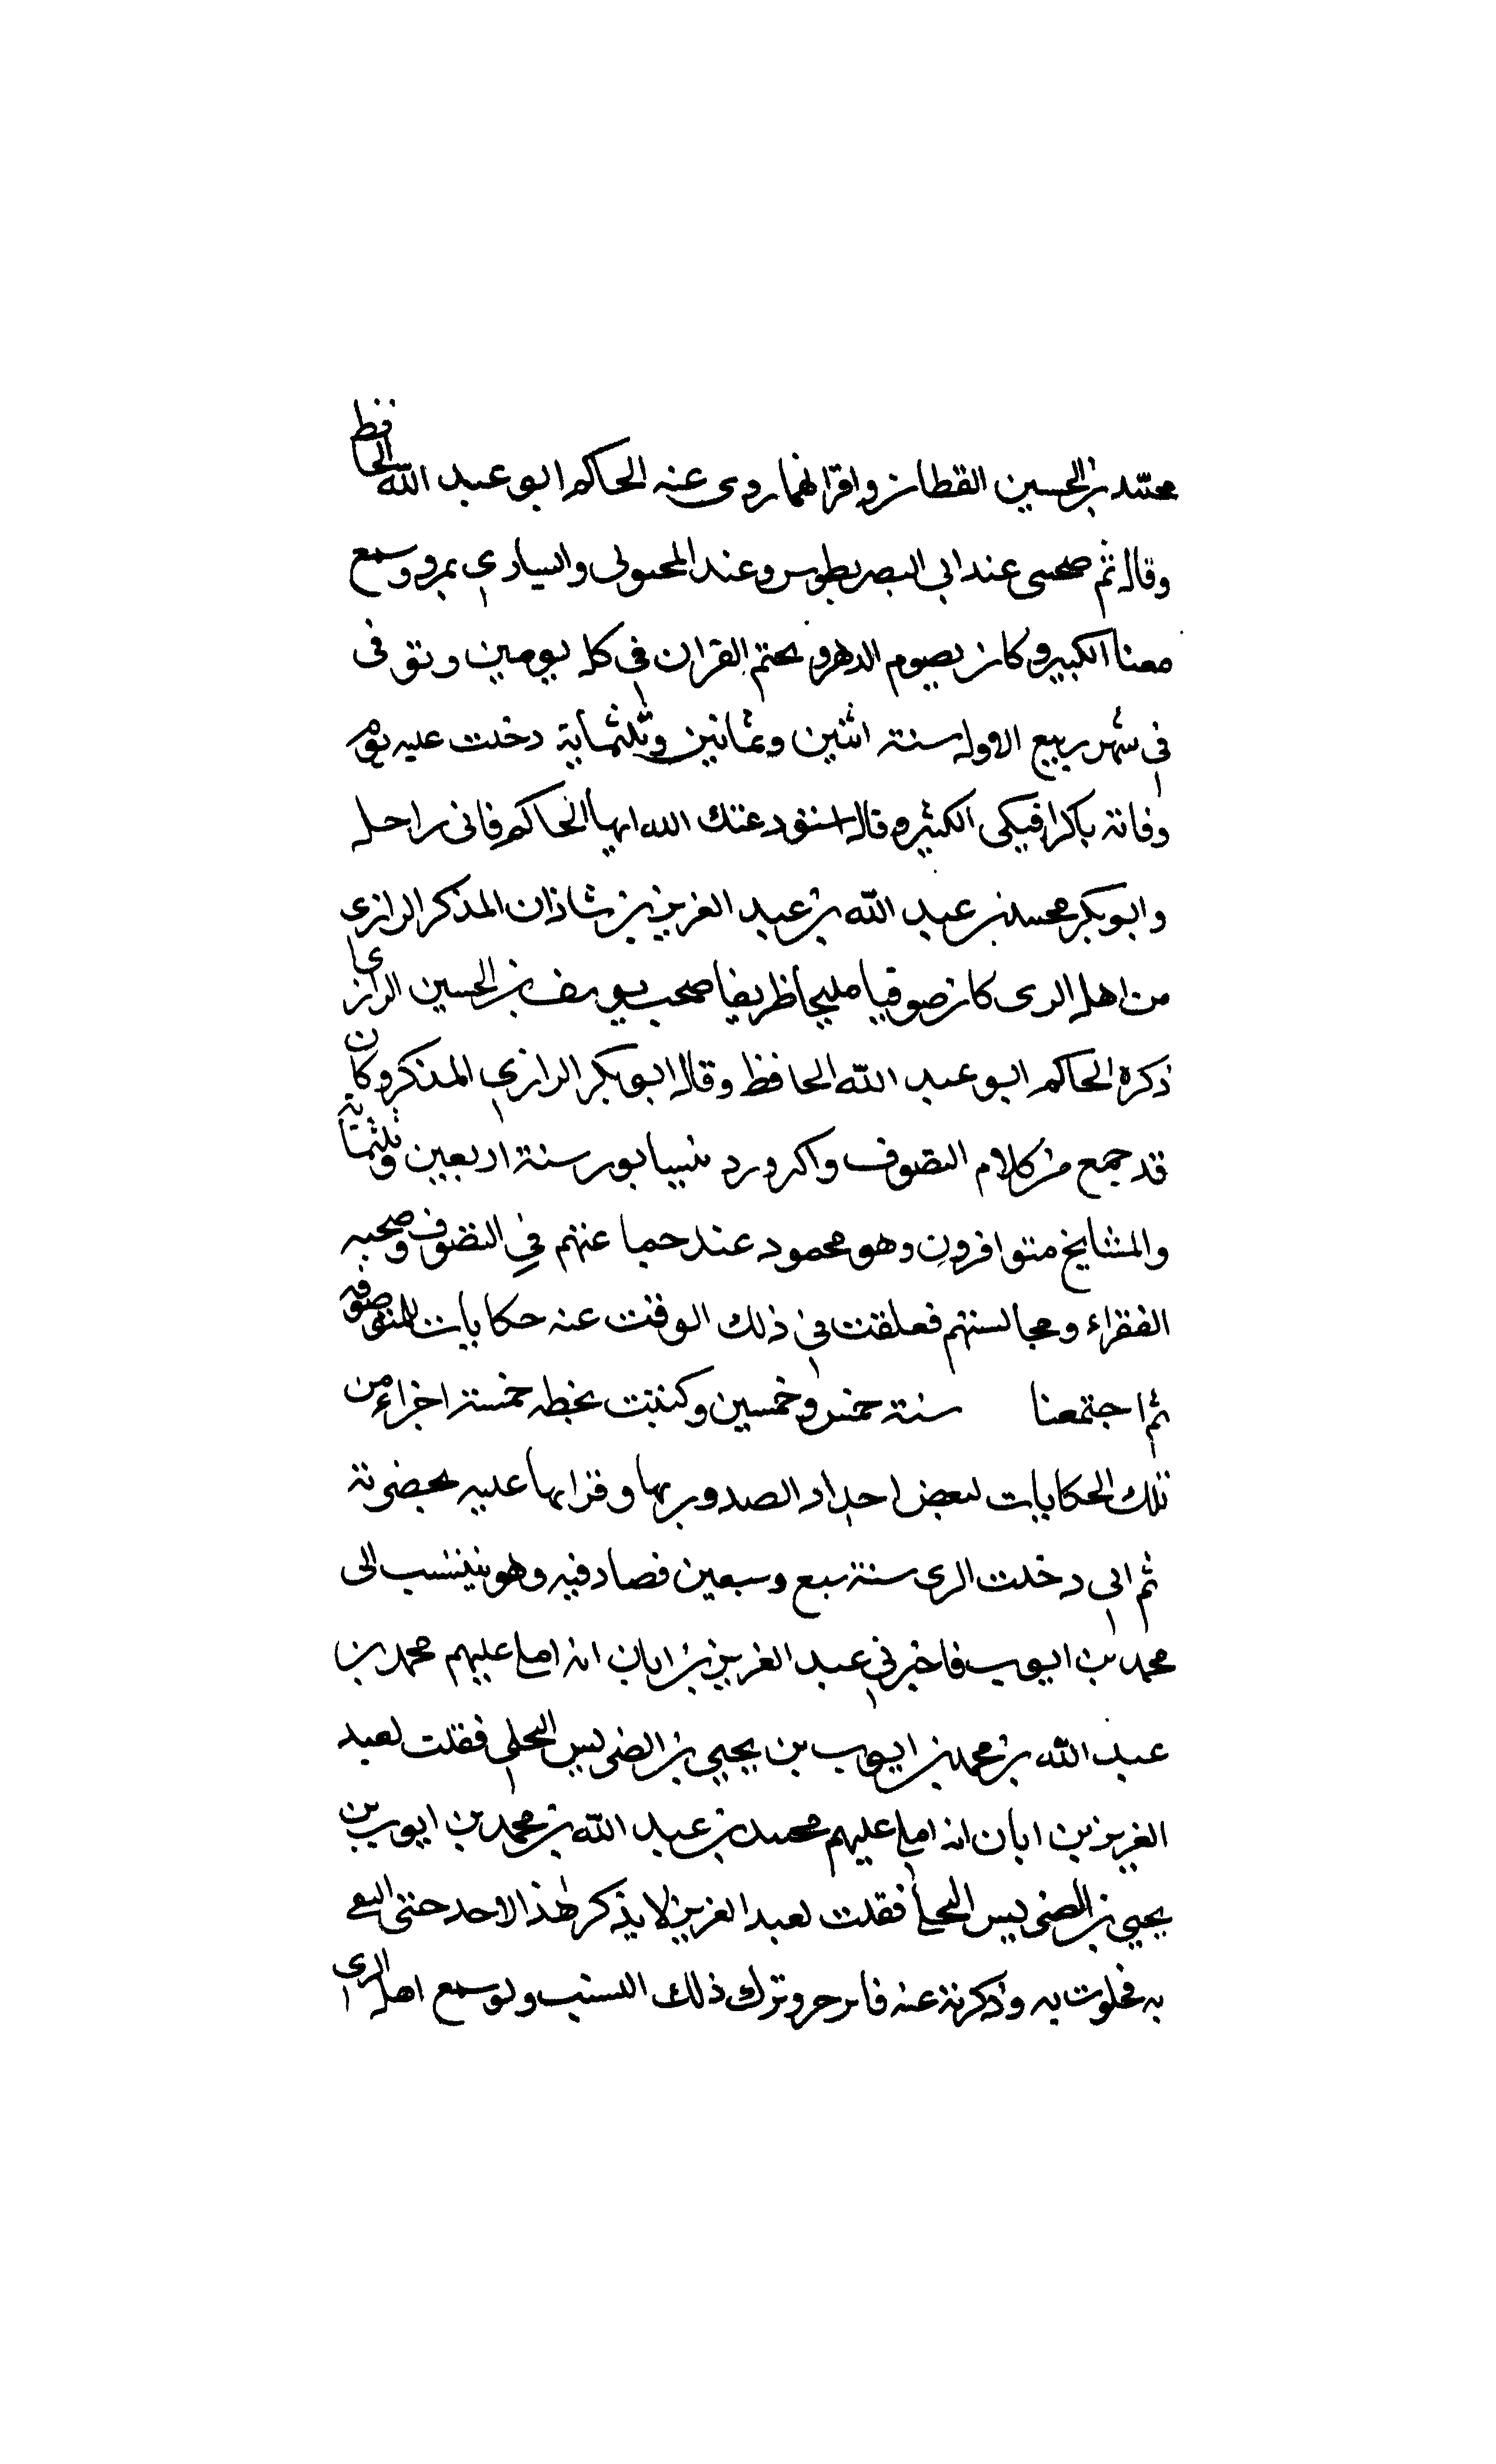 محمد بن الحسين القطان واقرانهما روى عنه الحاكم ابو عبد الله الحافظ
وقال ثم صحبنى عند ابى النصر بطوس وعند المحبولى والسيارى بمرو وسمع
معنا الكبير وكان يصوم الدهر ويختم القران فى كل يومين وتوفى
فى شهر ربيع الاول سنة اثنين وثمانين وثلثمائة دخلت عليه يوم
وفاته باكرا فبكى الكثير وقال استودعتك الله ايها الحاكم فانى راحل
وابو بكر محمد بن عبد الله بن عبد العزيز بن شاذان المذكر الرازى
من اهل الرى كان صوفيا مليحا ظريفا صحب يوسف بن الحسين الرازى
ذكره الحاكم ابو عبد الله الحافظ وقال ابو بكر الرازى المذكر وكان
قد جمع من كلام التصوف واكر ورد نيسابور سنة اربعين وثلثمائة
والمشايخ متوافرون وهو محمود عند جماعتهم فى التصوف وصحبه
الفقراء ومجالستهم فعلقت فى ذلك الوقت عنه حكايات للمتصوفه
ثم اجتمعنا سنة خمس وخمسين وكتبت بخطه خمسة اجزاء من
تلك الحكايات لبعض احداد الصدور بها وقرابها عليه بحضرته
ثم انى دخلت الرى سنة سبع وسبعين فصادفيه وهو ينتسب الى
محمد بن ايوب فاخبرنى عبد العزيز بن ابان انه املى عليهم محمد بن
عبد الله بن محمد بن ايوب بن يحيى بن الضريس البجلى فقلت لعبد
العزيز بن ابان انه املى عليهم محمد بن عبد الله بن محمد بن ايوب بن
يحيى بن الضريس البجلى فقلت لعبد العزيز لا يذكر هذا لاحد حتى التقى
به فخلوت به وذكرته عنه فانزجر وترك ذلك النسب ولو سمع اهل الرى